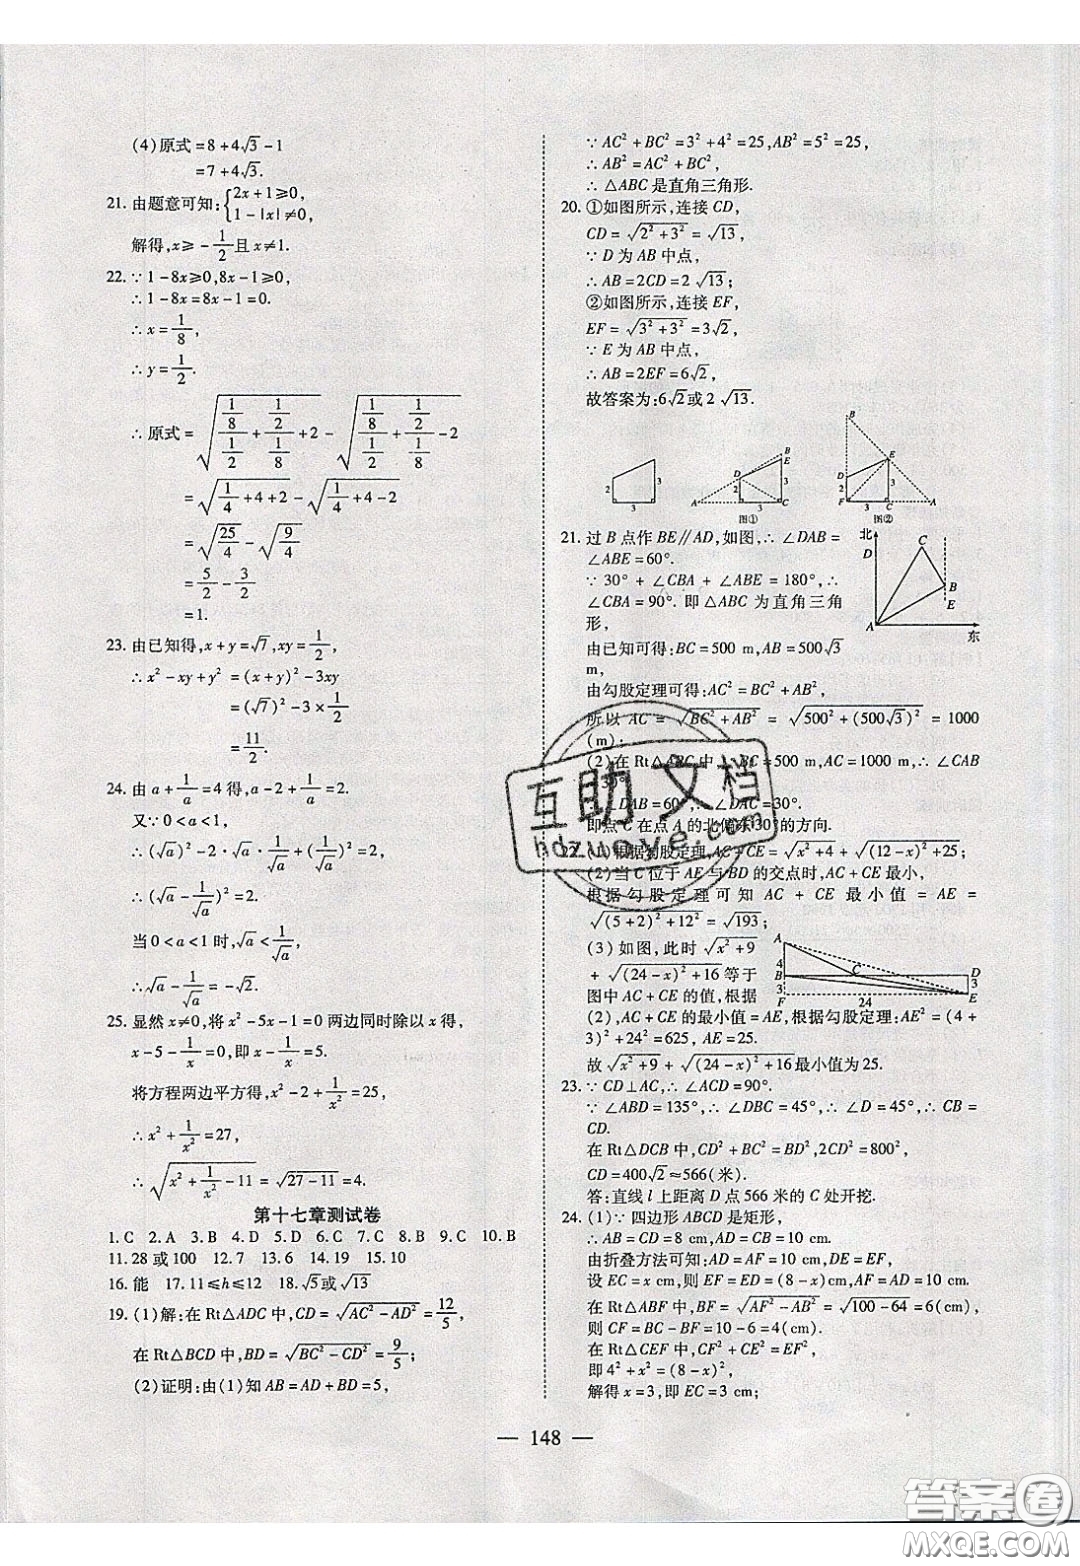 (4)原式=8+4√3-1
=7+4√3.
21. 由题意可知:{2x+1≥0,
1-|x|≠0,
解得,x≥-1/2且x≠1.
22. ∵1-8x≥0,8x-1≥0,
∴1-8x=8x-1=0.
∴x=1/8,
∴y=1/2.
∴原式=√((1/8)/(1/2)+(1/2)/(1/8)+2)-√((1/8)/(1/2)+(1/2)/(1/8)-2)
=√(1/4+4+2)-√(1/4+4-2)
=√(25/4)-√(9/4)
=5/2-3/2
=1.
23. 由已知得,x+y=√7,xy=1/2,
∴x²-xy+y²=(x+y)²-3xy
=(√7)²-3×1/2
=11/2.
24. 由a+1/a=4得,a-2+1/a=2.
又∵0<a<1,
∴(√a)²-2·√a·1/√a+(1/√a)²=2,
∴(√a-1/√a)²=2.
当0<a<1时,√a<1/√a,
∴√a-1/√a=-√2.
25. 显然x≠0,将x²-5x-1=0两边同时除以x得,
x-5-1/x=0,即x-1/x=5.
将方程两边平方得,x²-2+1/x²=25,
∴x²+1/x²=27,
∴√(x²+1/x²-11)=√(27-11)=4.
第十七章测试卷
1.C 2.A 3.B 4.D 5.D 6.C 7.C 8.B 9.C 10.B
11.28或100 12.7 13.6 14.19 15.10
16.能 17.11≤h≤12 18.√5或√13
19. (1)解:在Rt△ADC中,CD=√(AC²-AD²)=12/5,
在Rt△BCD中,BD=√(BC²-CD²)=9/5;
(2)证明:由(1)知AB=AD+BD=5,
∵AC²+BC²=3²+4²=25,AB²=5²=25,
∴AB²=AC²+BC²,
∴△ABC是直角三角形.
20. ①如图所示,连接CD,
CD=√(2²+3²)=√13,
∵D为AB中点,
∴AB=2CD=2√13;
②如图所示,连接EF,
EF=√(3²+3²)=3√2,
∵E为AB中点,
∴AB=2EF=6√2,
故答案为:6√2或2√13.
2 3 3
A D B E C 2 3 3
图①
B D E F C A 2 3 3
图②
21. 过B点作BE∥AD,如图,∴∠DAB=
∠ABE=60°.
∵30°+∠CBA+∠ABE=180°,∴
∠CBA=90°.即△ABC为直角三角
形,
由已知可得:BC=500 m,AB=500√3
m,
北 D C B E A 东
由勾股定理可得:AC²=BC²+AB²,
所以AC=√(BC²+AB²)=√(500²+(500√3)²)=1000
(m);
(2)在Rt△ABC中,∵BC=500 m,AC=1000 m,∴∠CAB
=30°.
∵∠DAB=60°,∴∠DAC=30°.
即点C在点A的北偏东30°的方向.
22. (1)根据勾股定理,AC+CE=√(x²+4)+√((12-x)²+25);
(2)当C位于AE与BD的交点时,AC+CE最小,
根据勾股定理可知AC+CE最小值=AE=
√((5+2)²+12²)=√193;
(3)如图,此时√(x²+9)
+√((24-x)²+16)等于
图中AC+CE的值,根据
A 4 B C D 3 3 F 24 E
(2),AC+CE的最小值=AE,根据勾股定理:AE²=(4+
3)²+24²=625,AE=25.
故√(x²+9)+√((24-x)²+16)最小值为25.
23. ∵CD⊥AC,∴∠ACD=90°.
∵∠ABD=135°,∴∠DBC=45°,∴∠D=45°,∴CB=
CD.
在Rt△DCB中,CD²+BC²=BD²,2CD²=800²,
CD=400√2≈566(米).
答:直线l上距离D点566米的C处开挖.
24. (1)∵四边形ABCD是矩形,
∴AB=CD=8 cm,AD=CB=10 cm,
由折叠方法可知:AD=AF=10 cm,DE=EF,
设EC=x cm,则EF=ED=(8-x)cm,AD=AF=10 cm.
在Rt△ABF中,BF=√(AF²-AB²)=√(100-64)=6(cm),
则CF=BC-BF=10-6=4(cm).
在Rt△CEF中,CF²+CE²=EF²,
即4²+x²=(8-x)²,
解得x=3,即EC=3 cm;
— 148 —
互助文档
hdzuoye.com
答案圈
MXQE.COM